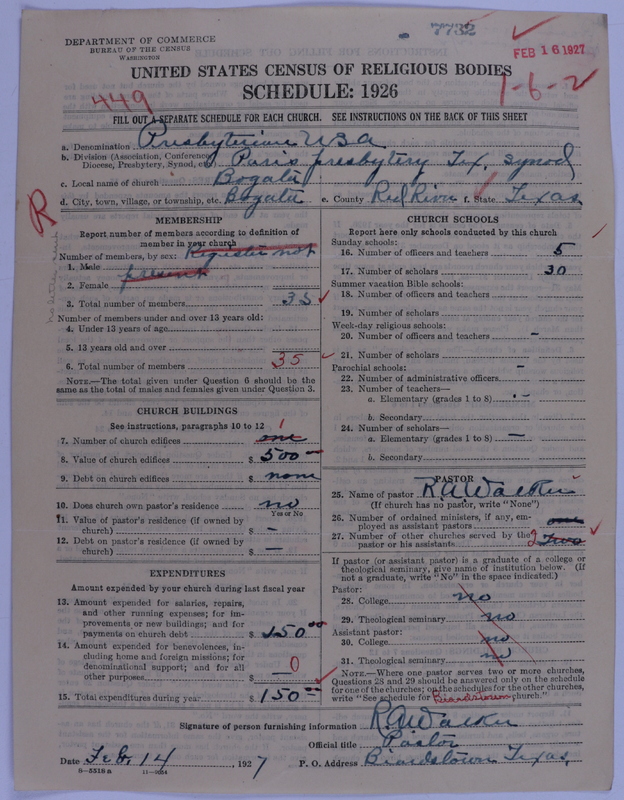 7732
DEPARTMENT OF COMMERCE
BUREAU OF THE CENSUS
WASHINGTON
FEB 16 1927
UNITED STATES CENSUS OF RELIGIOUS BODIES
SCHEDULE: 1926
1-6-2
449
FILL OUT A SEPARATE SCHEDULE FOR EACH CHURCH. SEE INSTRUCTIONS ON THE BACK OF THIS SHEET
a. Denomination Presbyterian USA
b. Division (Association, Conference, Diocese, Presbytery, Synod, etc.) Paris presbytery Tex. synod
c. Local name of church Bogata
d. City, town, village, or township, etc. Bogata e. County Red River f. State Texas
R
MEMBERSHIP
Report number of members according to definition of
member in your church
Number of members, by sex: Register not
1. Male present
2. Female
3. Total number of members 35
Number of members under and over 13 years old:
4. Under 13 years of age
5. 13 years old and over
6. Total number of members 35
NOTE.—The total given under Question 6 should be the
same as the total of males and females given under Question 3.
CHURCH BUILDINGS
See instructions, paragraphs 10 to 12
7. Number of church edifices one 1
8. Value of church edifices $ 500
9. Debt on church edifices $ none
10. Does church own pastor's residence no
Yes or No
11. Value of pastor's residence (if owned by
church) $ —
12. Debt on pastor's residence (if owned by
church) $ —
EXPENDITURES
Amount expended by your church during last fiscal year
13. Amount expended for salaries, repairs,
and other running expenses; for im-
provements or new buildings; and for
payments on church debt $ 150.00
14. Amount expended for benevolences, in-
cluding home and foreign missions; for
denominational support; and for all
other purposes $ — 0
15. Total expenditures during year $ 150
CHURCH SCHOOLS
Report here only schools conducted by this church
Sunday schools:
16. Number of officers and teachers 5
17. Number of scholars 30
Summer vacation Bible schools:
18. Number of officers and teachers
19. Number of scholars
Week-day religious schools:
20. Number of officers and teachers -
21. Number of scholars
Parochial schools: -
22. Number of administrative officers
23. Number of teachers—
a. Elementary (grades 1 to 8) -
b. Secondary
24. Number of scholars—
a. Elementary (grades 1 to 8) —
b. Secondary
PASTOR
25. Name of pastor R A Walker
(If church has no pastor, write "None")
26. Number of ordained ministers, if any, em-
ployed as assistant pastors
27. Number of other churches served by the
pastor or his assistants 2 Two
If pastor (or assistant pastor) is a graduate of a college or
theological seminary, give name of institution below. (If
not a graduate, write "No" in the space indicated.)
Pastor:
28. College no
29. Theological seminary no
Assistant pastor:
30. College no
31. Theological seminary no
NOTE.—Where one pastor serves two or more churches,
Questions 28 and 29 should be answered only on the schedule
for one of the churches; on the schedules for the other churches,
write "See schedule for Beardstown church."
Signature of person furnishing information R A Walker
Official title Pastor
Date Feb. 14, 1927 P. O. Address Beardstown Texas.
8-5518a